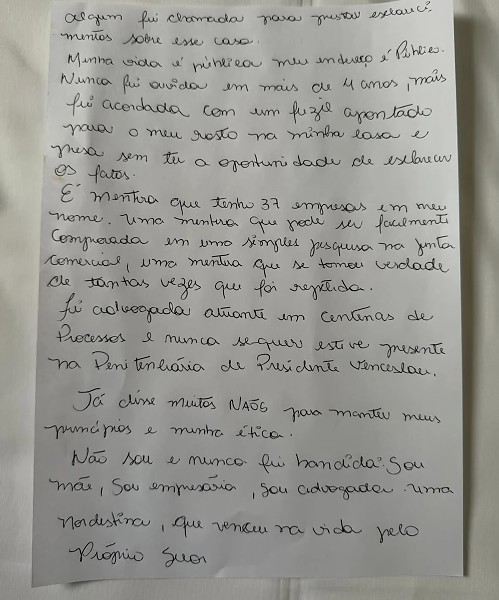 algum fui chamada para prestar esclareci
mentos sobre esse caso.
Minha vida é pública meu endereço é Público.
Nunca fui ouvida em mais de 4 anos, mais
fui acordada com um fuzil apontado
para o meu rosto na minha casa e
presa sem ter a oportunidade de esclarecer
os fatos.
É mentira que tenho 37 empresas em meu
nome. Uma mentira que pode ser facilmente
comprovada em uma simples pesquisa na junta
comercial, uma mentira que se tornou verdade
de tantas vezes que foi repetida.
fui advogada atuante em centenas de
Processos e nunca sequer estive presente
na Penitenhiária de Presidente Venceslau.
Já disse muitos NAÕS para manter meus
princípios e minha ética.
Não sou e nunca fui bandida. Sou
mãe, Sou empresária, sou advogada. Uma
Nordestina, que venceu na vida pelo
Próprio Suor